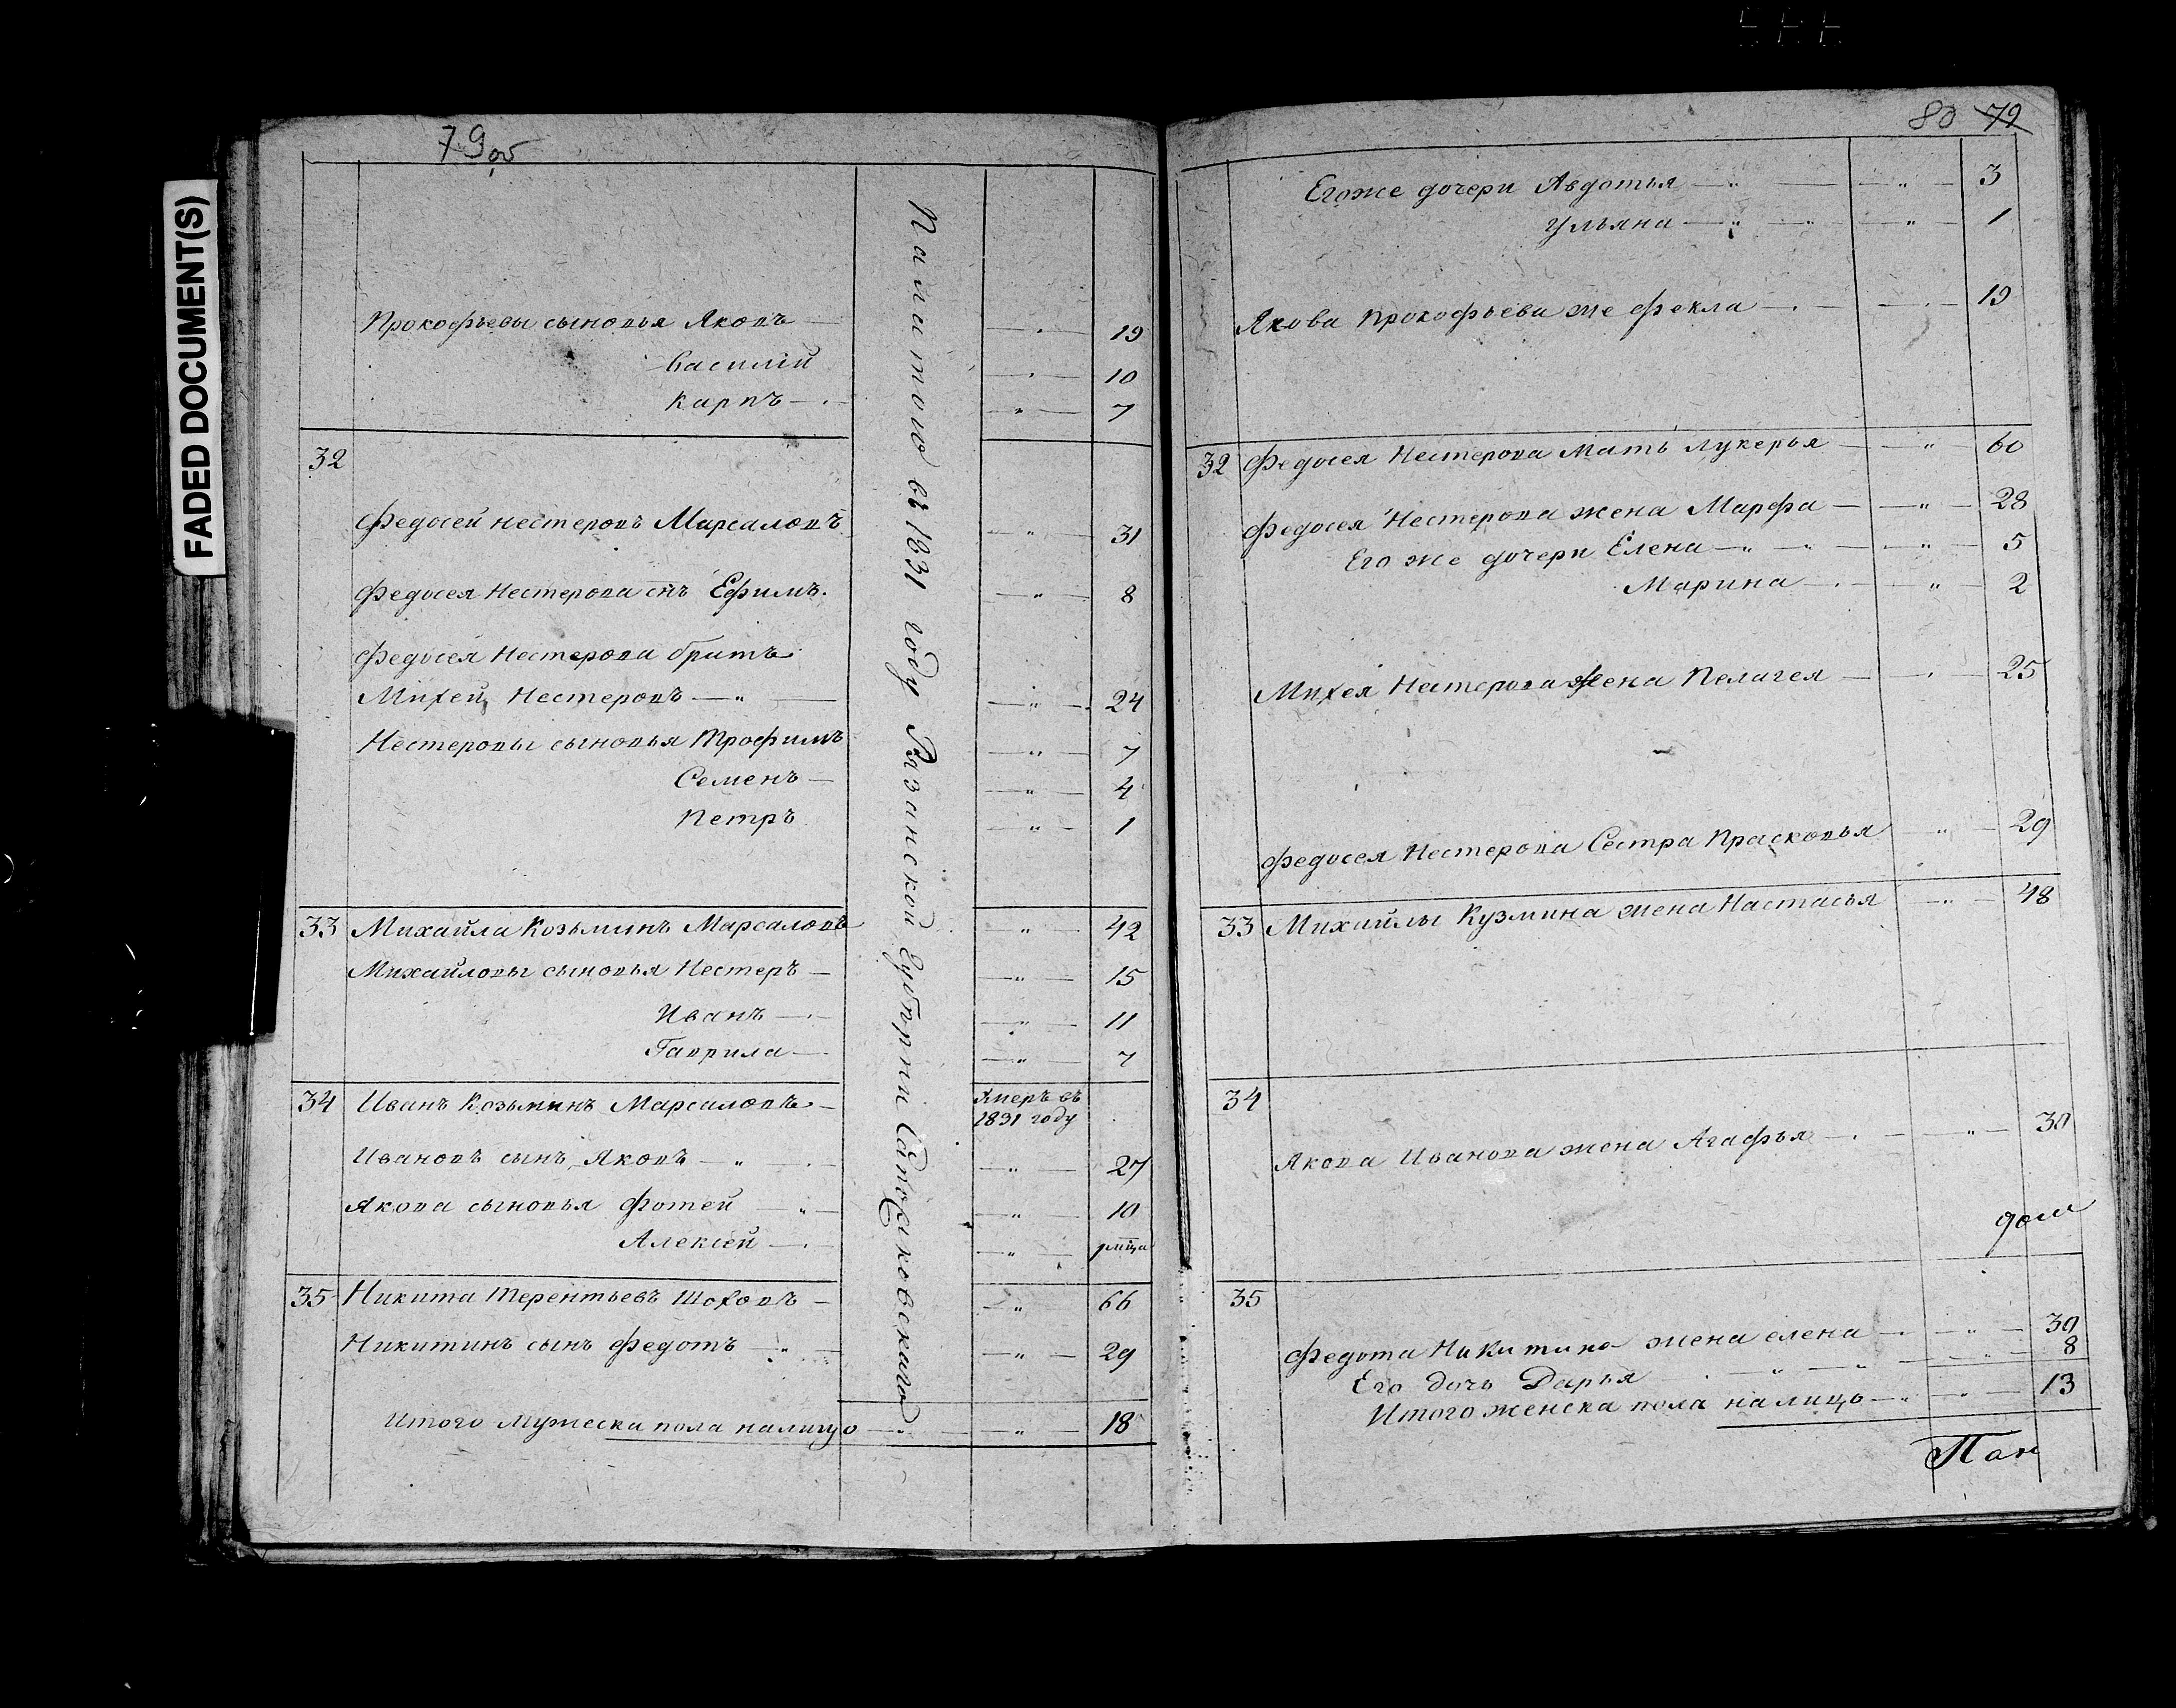 FADED DOCUMENT(S)
79 об
Прокофьевы сыновья Яковъ — " — 19
Василій — " — 10
Карпъ — " — 7
32
Федосей Нестеровъ Марсаловъ — " — 31
Федосея Нестерова снъ Ефимъ. — " — 8
Федосея Нестерова братъ
Михей Нестеровъ — " — 24
Нестеровы сыновья Трофимъ — " — 7
Семенъ — " — 4
Петръ — " — 1
33 Михайла Козьминъ Марсаловъ — " — 42
Михайловы сыновья Нестеръ — " — 15
Иванъ — " — 11
Гаврила — " — 7
34 Иванъ Козьминъ Марсаловъ — Умеръ въ
1831 году
Ивановъ сынъ Яковъ — " — 27
Якова сыновья Фотей — " — 10
Алексей — " — 1 мцa
35 Никита Терентьевъ Шоховъ — " — 66
Никитинъ сынъ Федотъ — " — 29
Итого Мужеска пола налицо — " — 18
въ 1831 году Рязанской Губерніи
80 79
Егоже дочери Авдотья — " — 3
Ульяна — " — 1
Якова Прокофьева же Фекла — " — 19
32 Федосея Нестерова Мать Лукерья — " — 60
Федосея Нестерова жена Марфа — " — 28
Его же дочери Елена — " — 5
Марина — " — 2
Михея Нестерова жена Пелагея — " — 25
Федосея Нестерова Сестра Прасковья — " — 29
33 Михайлы Кузмина жена Настасья — " — 48
34
Якова Иванова жена Агафья — " — 30
35
Федота Никитина жена елена — " — 30
Его дочь Дарья — " — 8
Итого женска пола налицо — " — 13